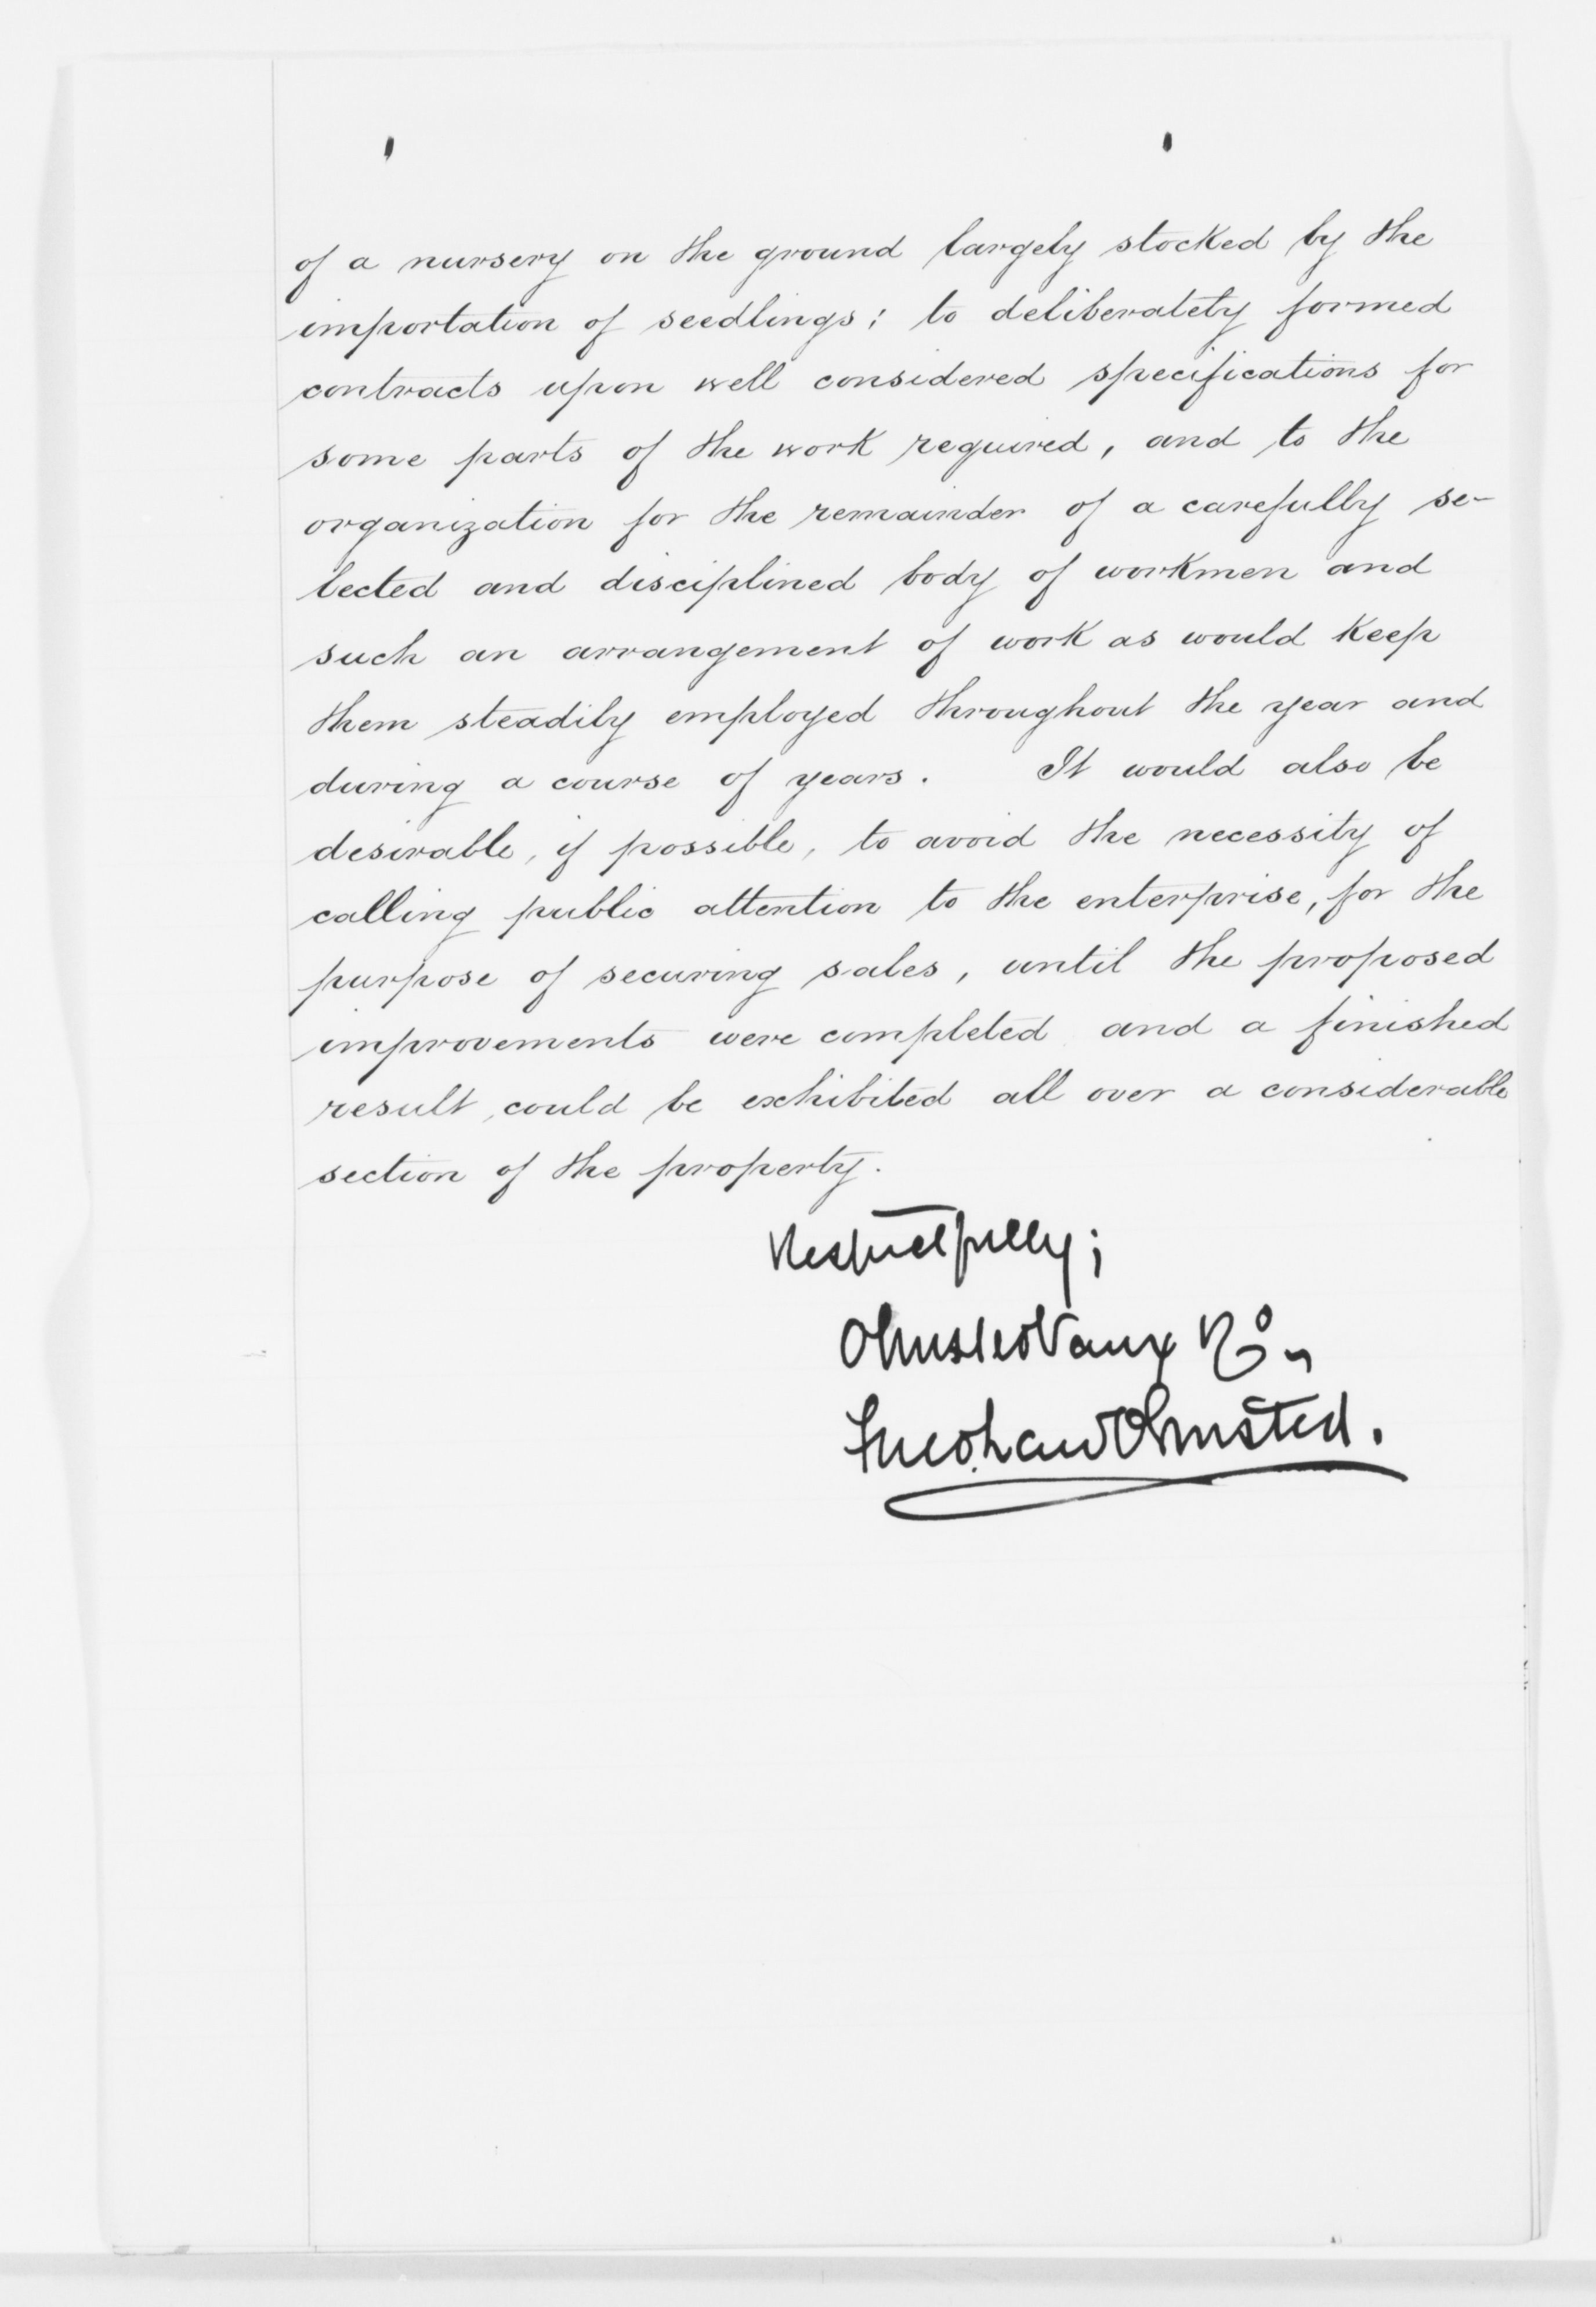 of a nursery on the ground largely stocked by the
importation of seedlings; to deliberately formed
contracts upon well considered specifications for
some parts of the work required, and to the
organization for the remainder of a carefully se-
lected and disciplined body of workmen and
such an arrangement of work as would keep
them steadily employed throughout the year and
during a course of years. It would also be
desirable, if possible, to avoid the necessity of
calling public attention to the enterprise, for the
purpose of securing sales, until the proposed
improvements were completed and a finished
result, could be exhibited all over a considerable
section of the property.
Respectfully;
Olmsted Vaux & Co.
Fred Law Olmsted.